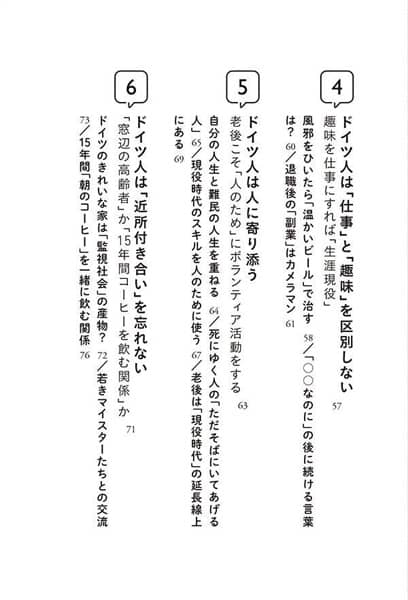 4
ドイツ人は「仕事」と「趣味」を区別しない
趣味を仕事にすれば「生涯現役」 57
風邪をひいたら「温かいビール」で治す 58／「○○なのに」の後に続ける言葉
は？ 60／退職後の「副業」はカメラマン 61
5
ドイツ人は人に寄り添う
老後こそ「人のため」にボランティア活動をする 63
自分の人生と難民の人生を重ねる 64／死にゆく人の「ただそばにいてあげる
人」 65／現役時代のスキルを人のために使う 67／老後は「現役時代」の延長線上
にある 69
6
ドイツ人は「近所付き合い」を忘れない
「窓辺の高齢者」か「15年間コーヒーを飲む関係」か 71
ドイツのきれいな家は「監視社会」の産物？ 72／若きマイスターたちとの交流
73／15年間「朝のコーヒー」を一緒に飲む関係 76